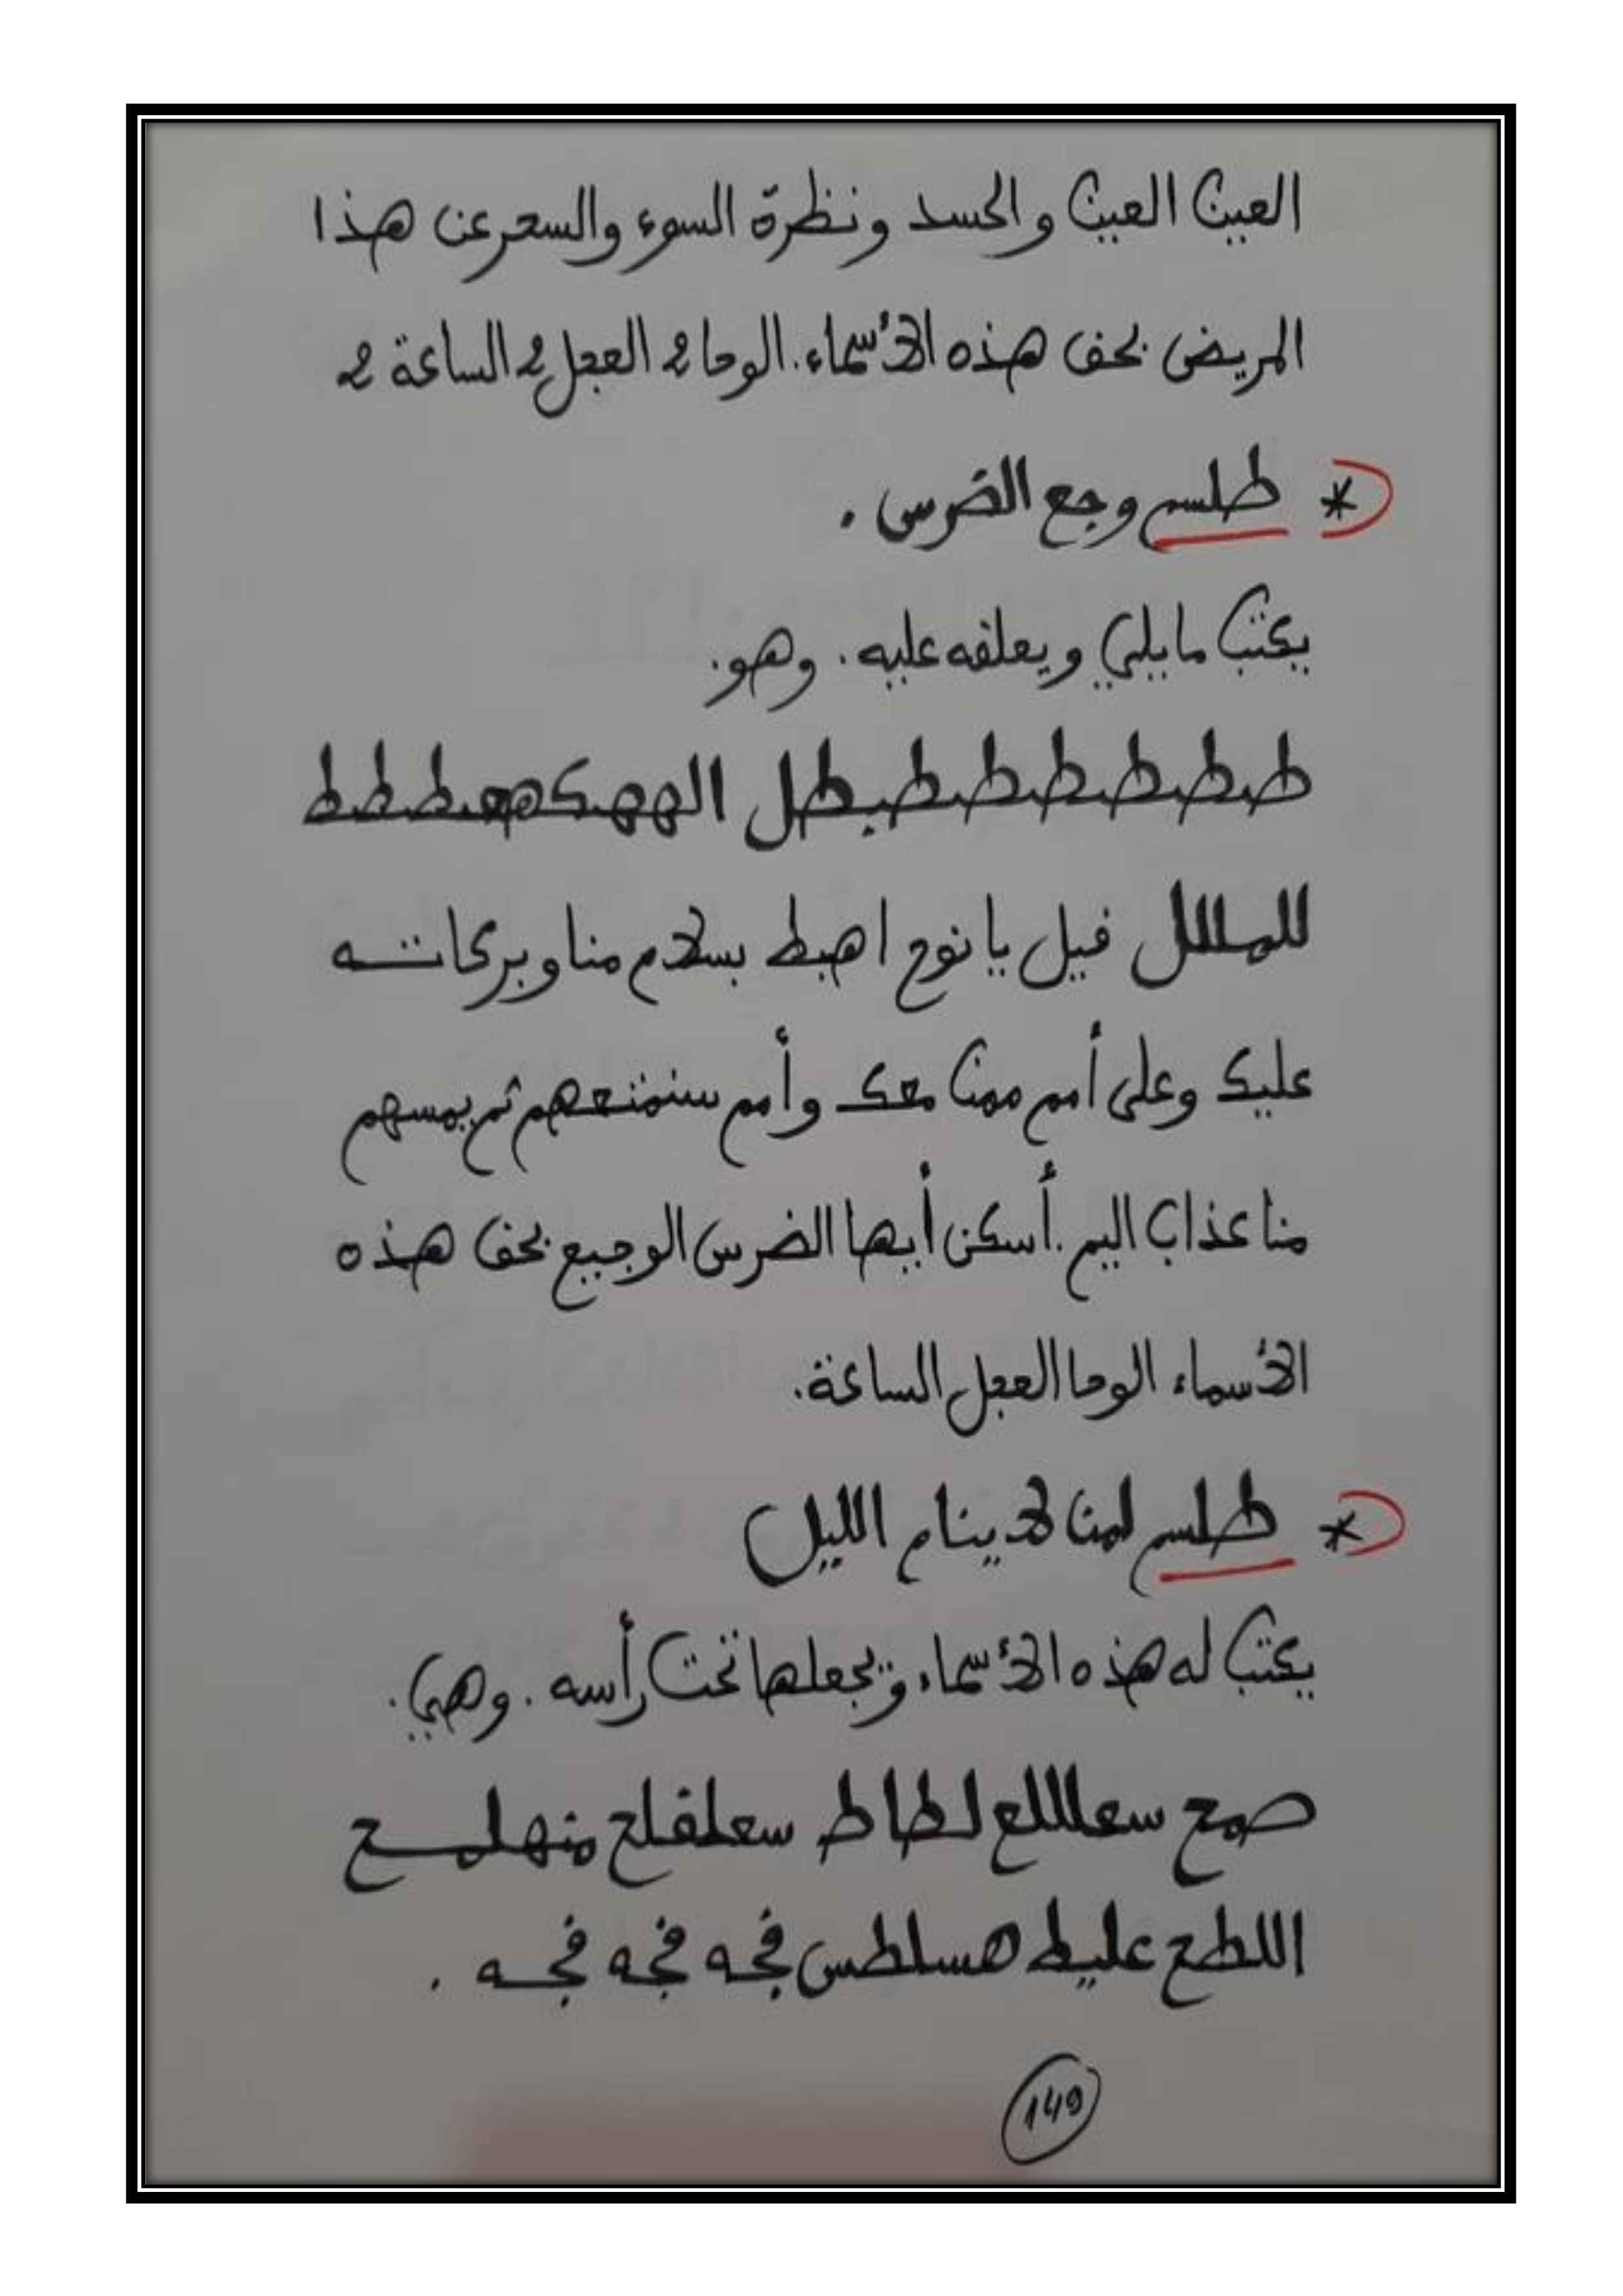 العين العين والحسد ونظرة السوء والسحر عن هذا
المريض بحق هذه الأسماء. الوحا 2 العجل 2 الساعة 2
* طلسم وجع الضرس .
يكتب مايلي ويعلقه عليه . وهو.
ططططططبطل الههكهعططط
للمللل قيل يا نوح اهبط بسلام منا وبركاتـه
عليك وعلى أمم ممن معك وأمم سنمتعهم ثم يمسهم
منا عذاب اليم . أسكن أيها الضرس الوجيع بحق هذه
الأسماء الوحا العجل الساعة.
* طلسم لمن لا ينام الليل
يكتب له هذه الأسماء ويجعلها تحت رأسه . وهي.
صمح سعاللع لطاط سعلقلح منهلمـح
اللطح عليط هسلطس فجه فجه فجـه .
149